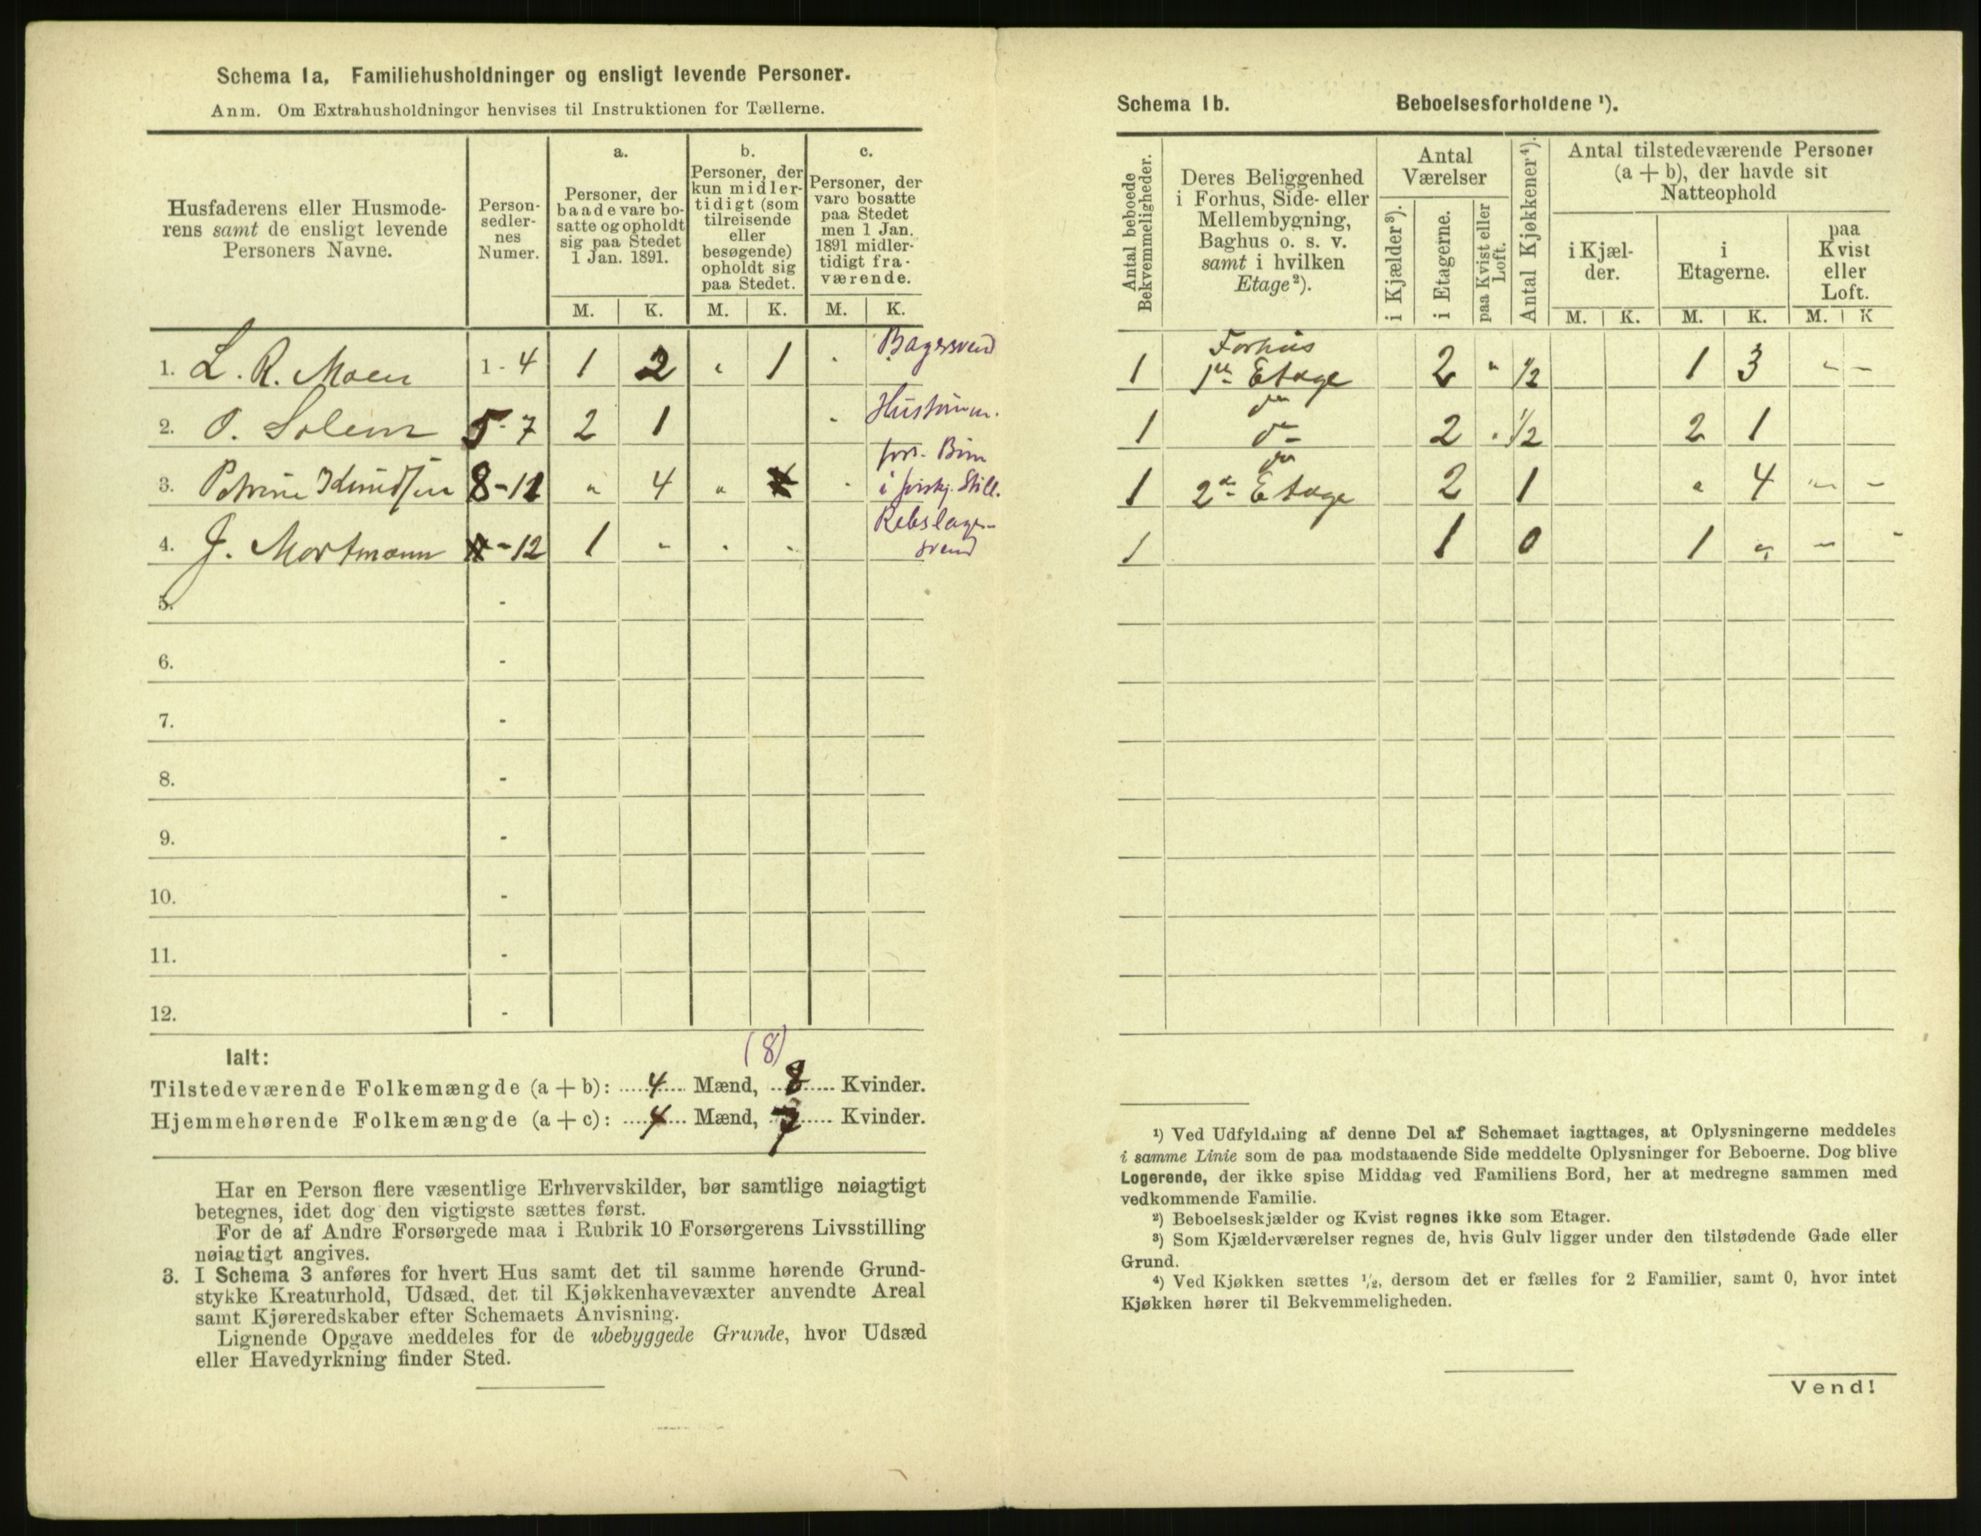 Schema 1a, Familiehusholdninger og ensligt levende Personer.
Anm. Om Extrahusholdninger henvises til Instruktionen for Tællerne.
Husfaderens eller Husmode-
rens samt de ensligt levende
Personers Navne.
Person-
sedler-
nes
Numer.
a.
Personer, der
baade vare bo-
satte og opholdt
sig paa Stedet
1 Jan. 1891.
b.
Personer, der
kun midler-
tidigt (som
tilreisende
eller
besøgende)
opholdt sig
paa Stedet.
c.
Personer, der
vare bosatte
paa Stedet
men 1 Jan.
1891 midler-
tidigt fra-
værende.
M. K. M. K. M. K.
1. L. R. Moen 1-4 1 2 " 1 - Bagersvend
2. O. Solem 5-7 2 1 - Hustømm.
3. Petrine Knudsen 8-11 " 4 " - fors. Børn
i forskj. Still.
4. J. Mortmann -12 1 - - - Rebslager-
svend
5. -
6. -
7. -
8. -
9. -
10. -
11. -
12. -
Ialt:
(8)
Tilstedeværende Folkemængde (a + b): 4 Mænd, 8 Kvinder.
Hjemmehørende Folkemængde (a + c): 4 Mænd, 7 Kvinder.
Har en Person flere væsentlige Erhvervskilder, bør samtlige nøiagtigt
betegnes, idet dog den vigtigste sættes først.
For de af Andre Forsørgede maa i Rubrik 10 Forsørgerens Livsstilling
nøiagtigt angives.
3. I Schema 3 anføres for hvert Hus samt det til samme hørende Grund-
stykke Kreaturhold, Udsæd, det til Kjøkkenhavevæxter anvendte Areal
samt Kjøreredskaber efter Schemaets Anvisning.
Lignende Opgave meddeles for de ubebyggede Grunde, hvor Udsæd
eller Havedyrkning finder Sted.
Schema 1b. Beboelsesforholdene ¹).
Antal beboede
Bekvemmeligheder.
Deres Beliggenhed
i Forhus, Side- eller
Mellembygning,
Baghus o. s. v.
samt i hvilken
Etage²).
Antal
Værelser
i Kjælder³).
i Etagerne.
paa Kvist eller
Loft.
Antal Kjøkkener⁴).
Antal tilstedeværende Personer
(a + b), der havde sit
Natteophold
i Kjæl-
der.
i
Etagerne.
paa
Kvist
eller
Loft.
M. K. M. K. M. K
Forhus
1 1ste Etage 2 " 1/2 1 3 - -
do
1 do 2 " 1/2 2 1
do
1 2den Etage 2 1 " 4 - -
1 1 0 1 " - -
¹) Ved Udfyldning af denne Del af Schemaet iagttages, at Oplysningerne meddeles
i samme Linie som de paa modstaaende Side meddelte Oplysninger for Beboerne. Dog blive
Logerende, der ikke spise Middag ved Familiens Bord, her at medregne sammen med
vedkommende Familie.
²) Beboelseskjælder og Kvist regnes ikke som Etager.
³) Som Kjælderværelser regnes de, hvis Gulv ligger under den tilstødende Gade eller
Grund.
⁴) Ved Kjøkken sættes ½, dersom det er fælles for 2 Familier, samt 0, hvor intet
Kjøkken hører til Bekvemmeligheden.
Vend!